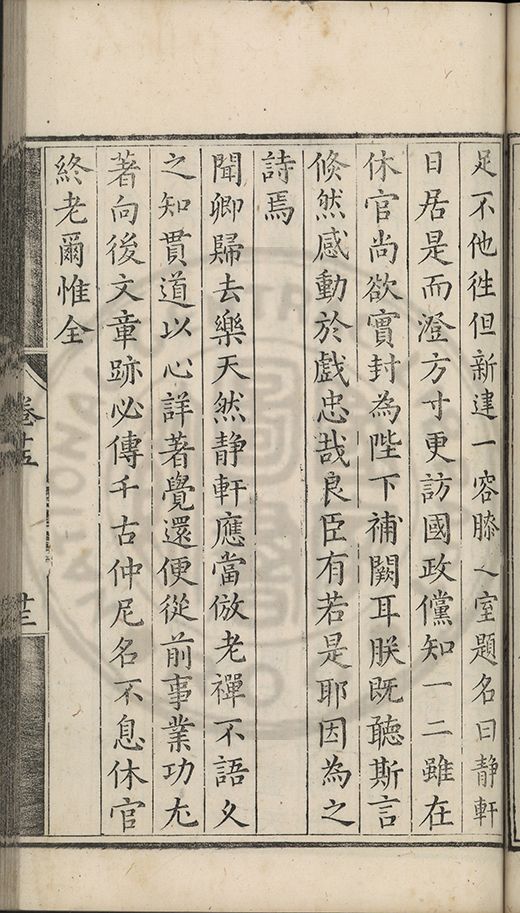 足不他徃但新建一容膝之室題名曰静軒
日居是而澄方寸更訪國政儻知一二雖在
休官尚欲實封為陛下補闕耳朕既聴斯言
倏然感動於戲忠哉良臣有若是耶因為之
詩焉
聞卿歸去樂天然静軒應當倣老禪不語久
之知貫道以心詳著覺還便從前事業功尤
著向後文章跡必傳千古仲尼名不息休官
終老爾惟全
卷十五
廿三